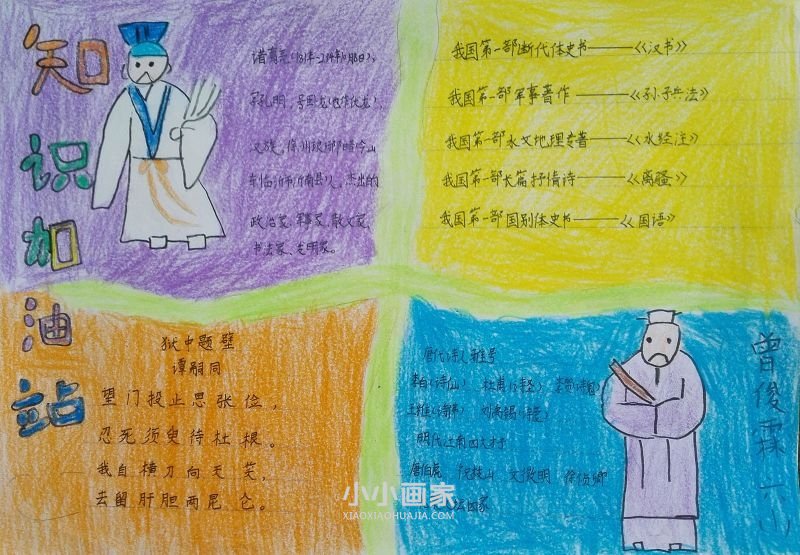 知识加油站
诸葛亮(181年-234年10月8日)、
字孔明,号卧龙(也作伏龙),
汉族,徐州琅琊阳都(今山
东临沂市沂南县)人,杰出的
政治家、军事家、散文家、
书法家、发明家。
我国第一部断代体史书——《汉书》
我国第一部军事著作——《孙子兵法》
我国第一部水文地理专著——《水经注》
我国第一部长篇抒情诗——《离骚》
我国第一部国别体史书——《国语》
狱中题壁
谭嗣同
望门投止思张俭,
忍死须臾待杜根。
我自横刀向天笑,
去留肝胆两昆仑。
唐代诗人雅号
李白(诗仙) 杜甫(诗圣) 李贺(诗鬼)
王维(诗佛) 刘禹锡(诗豪)
明代江南四大才子
唐伯虎 祝枝山 文徵明 徐祯卿
曾俊霖 六
小小画家
XIAOXIAOHUAJIA.COM